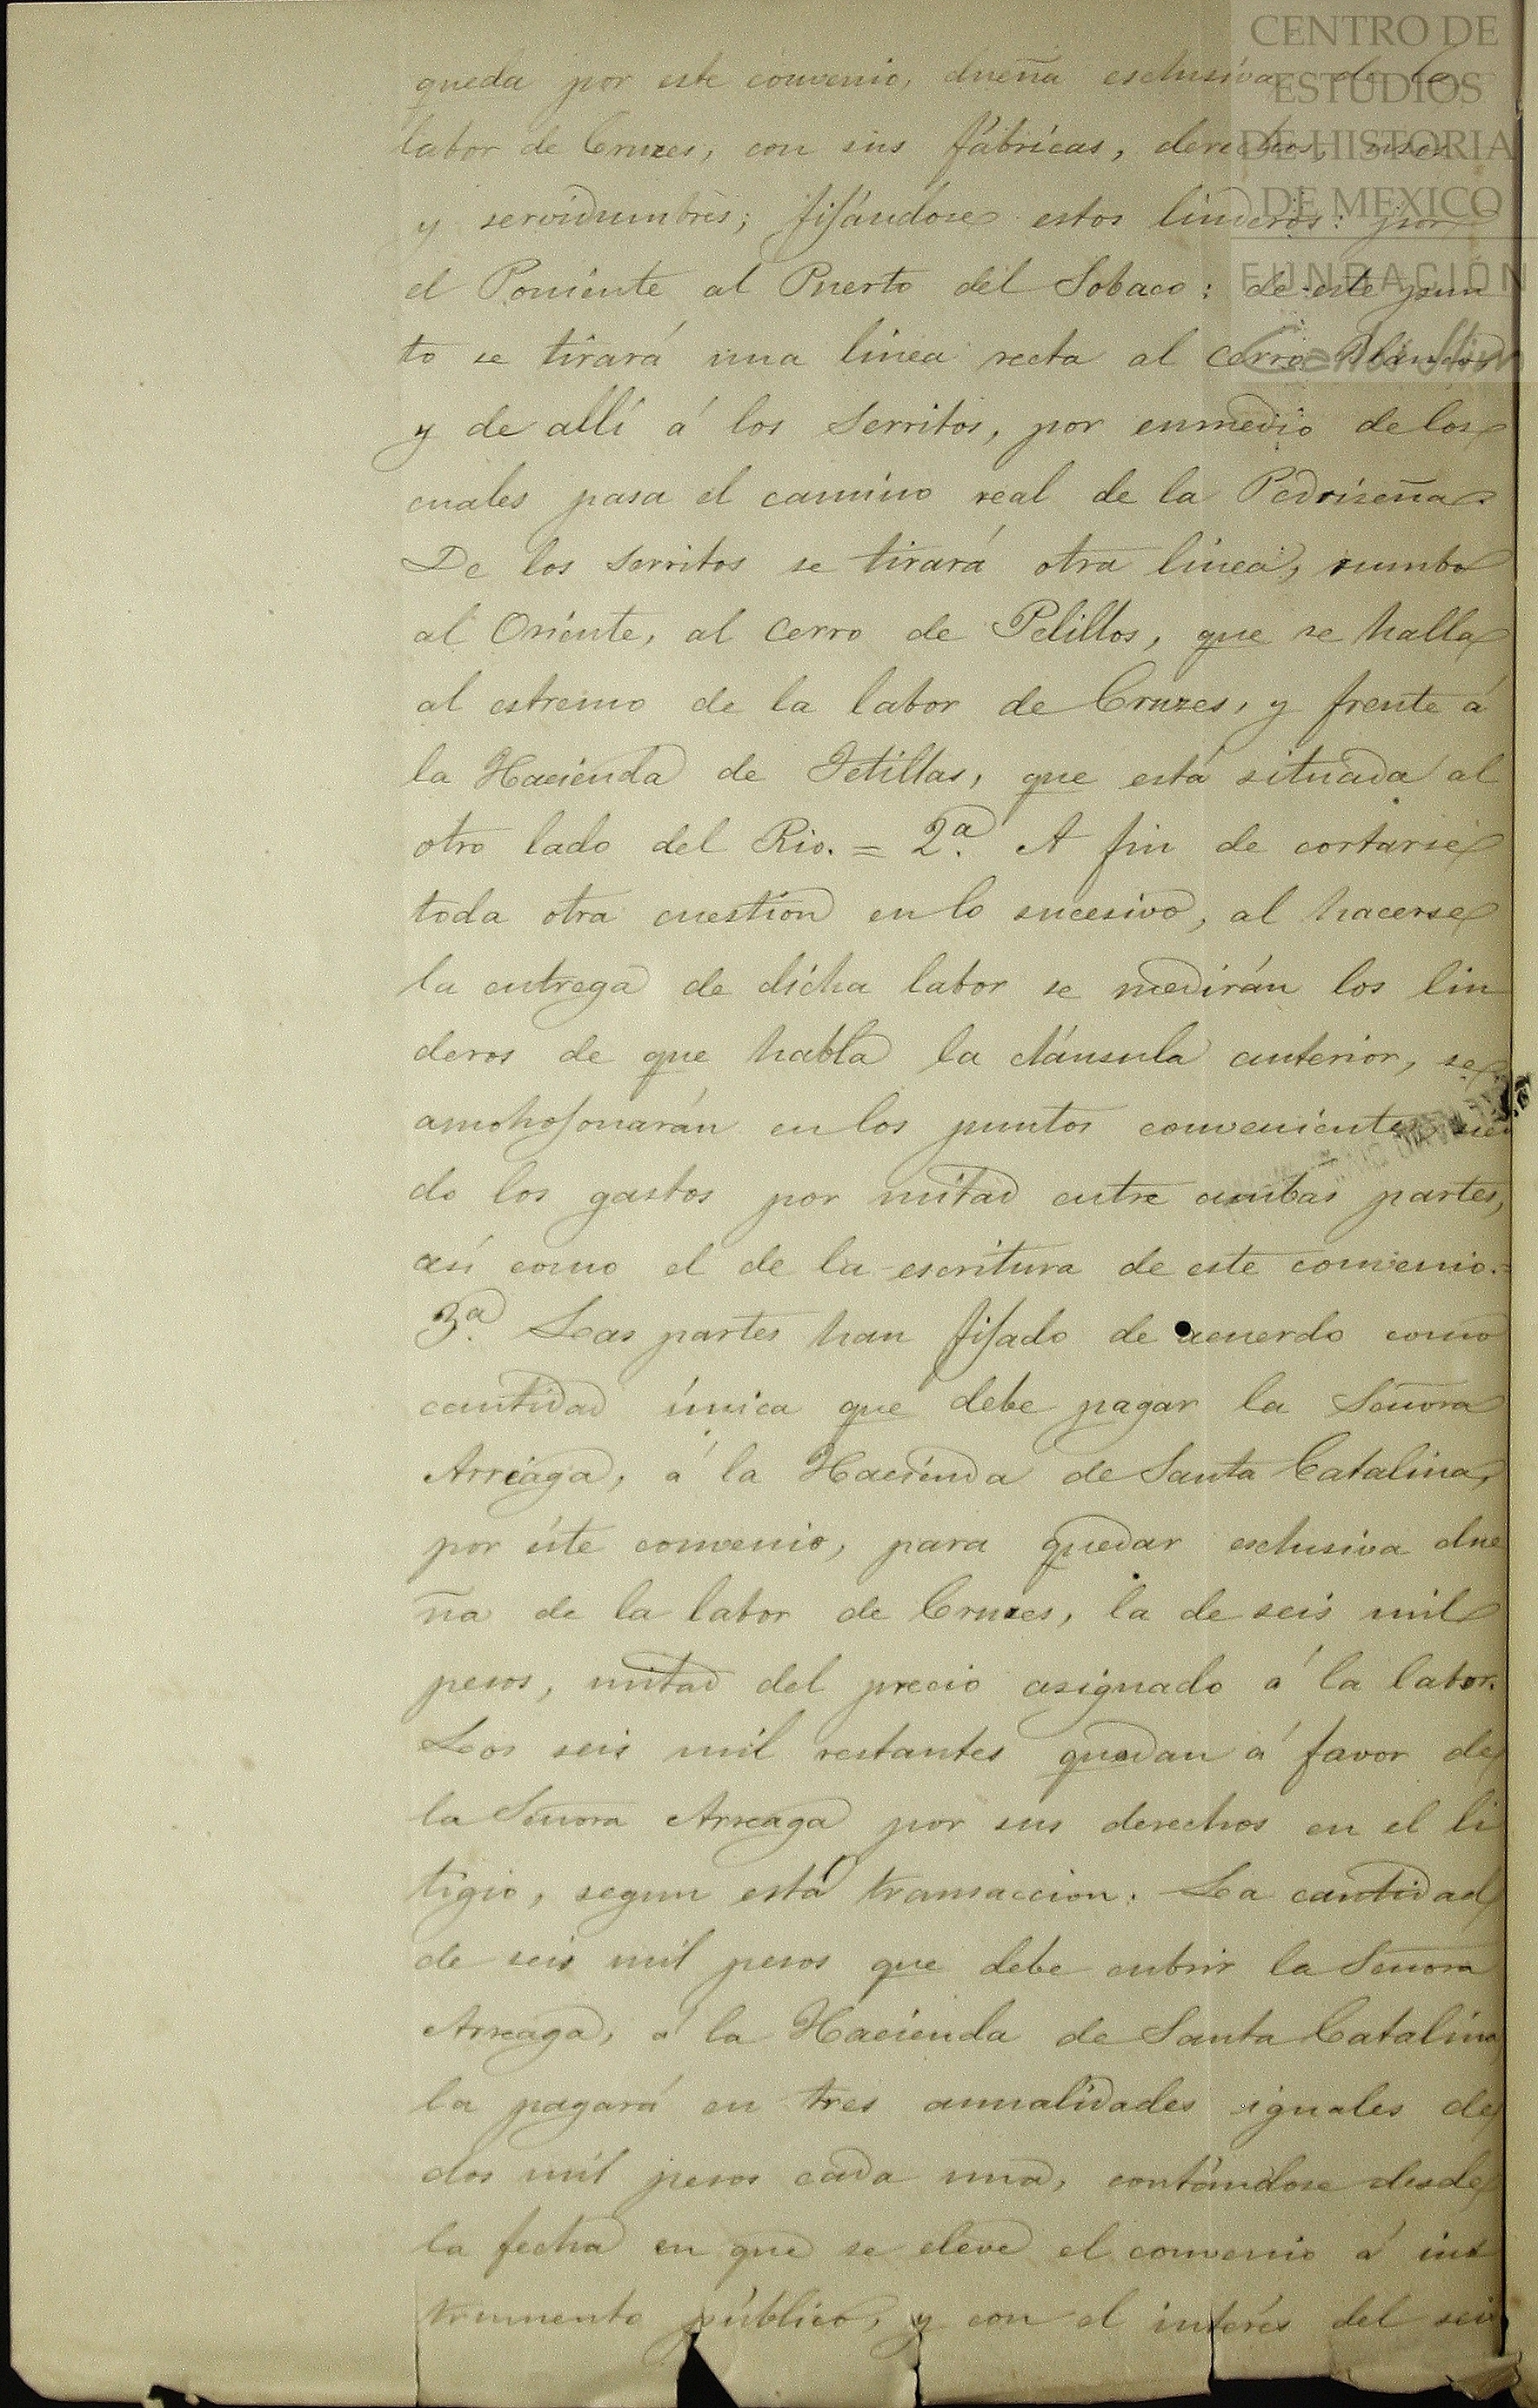 CENTRO DE
ESTUDIOS
DE HISTORIA
DE MEXICO
FUNDACIÓN
Carlos Slim
queda por este convenio, dueña esclusiva de la
labor de Cruzes, con sus fábricas, derechos, usos
y servidumbres; fijándose estos linderos: por
el Poniente al Puerto del Sobaco: de este pun
to se tirará una linea recta al cerro Blanco
y de allí á los Serritos, por enmedio de los
cuales pasa el camino real de la Pedriseña.
De los Serritos se tirará otra linea, rumbo
al Oriente, al cerro de Pelillos, que se halla
al estremo de la labor de Cruzes, y frente á
la Hacienda de Tetillas, que está situada al
otro lado del Rio. = 2ª. A fin de cortarse
toda otra cuestion en lo sucesivo, al hacerse
la entrega de dicha labor se medirán los lin
deros de que habla la cláusula anterior, se
amohojonarán en los puntos convenientes, sien
do los gastos por mitad entre ambas partes,
así como el de la escritura de este convenio.=
3ª. Las partes han fijado de acuerdo como
cantidad única que debe pagar la Señora
Arreaga, á la Hacienda de Santa Catalina,
por éste convenio, para quedar esclusiva due
ña de la labor de Cruzes, la de seis mil
pesos, mitad del precio asignado á la labor.
Los seis mil restantes quedan á favor de
la Señora Arreaga por sus derechos en el li
tigio, segun está transaccion. La cantidad
de seis mil pesos que debe cubrir la Señora
Arreaga, á la Hacienda de Santa Catalina
la pagará en tres anualidades iguales de
dos mil pesos cada una, contándose desde
la fecha en que se eleve el convenio á ins
trumento público, y con el interés del seis